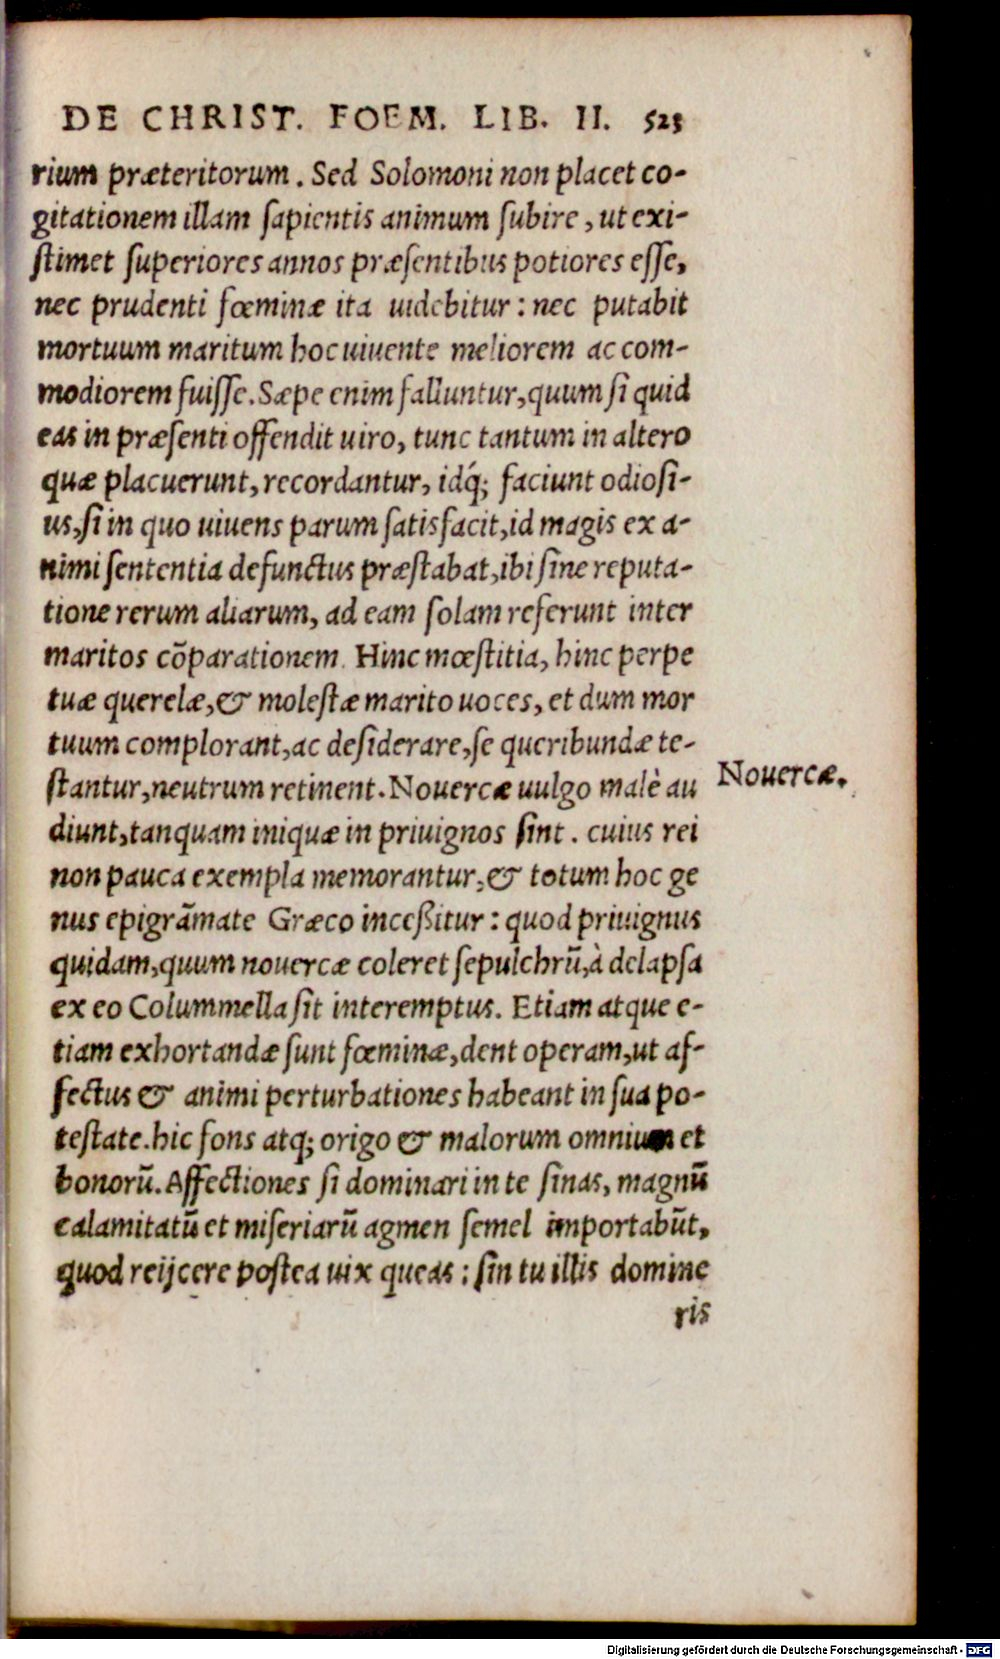 DE CHRIST. FOEM. LIB. II. 525
rium præteritorum. Sed Solomoni non placet co-
gitationem illam sapientis animum subire, ut exi-
stimet superiores annos præsentibus potiores esse,
nec prudenti fœminæ ita uidebitur: nec putabit
mortuum maritum hoc uiuente meliorem ac com-
modiorem fuisse. Sæpe enim falluntur, quum si quid
eas in præsenti offendit uiro, tunc tantum in altero
quæ placuerunt, recordantur, idq́; faciunt odiosi-
us, si in quo uiuens parum satisfacit, id magis ex a-
nimi sententia defunctus præstabat, ibi sine reputa-
tione rerum aliarum, ad eam solam referunt inter
maritos cõparationem. Hinc mœstitia, hinc perpe
tuæ querelæ, & molestæ marito uoces, et dum mor
tuum complorant, ac desiderare, se queribundæ te-
stantur, neutrum retinent. Nouercæ uulgo malè au
Nouercæ.
diunt, tanquam iniquæ in priuignos sint. cuius rei
non pauca exempla memorantur, & totum hoc ge
nus epigrãmate Græco inceßitur: quod priuignus
quidam, quum nouercæ coleret sepulchrũ, à delapsa
ex eo Colummella sit interemptus. Etiam atque e-
tiam exhortandæ sunt fœminæ, dent operam, ut af-
fectus & animi perturbationes habeant in sua po-
testate. hic fons atq; origo & malorum omnium et
bonorũ. Affectiones si dominari in te sinas, magnũ
calamitatũ et miseriarũ agmen semel importabũt,
quod reijcere postea uix queas: sin tu illis domine
ris
Digitalisierung gefördert durch die Deutsche Forschungsgemeinschaft - DFG